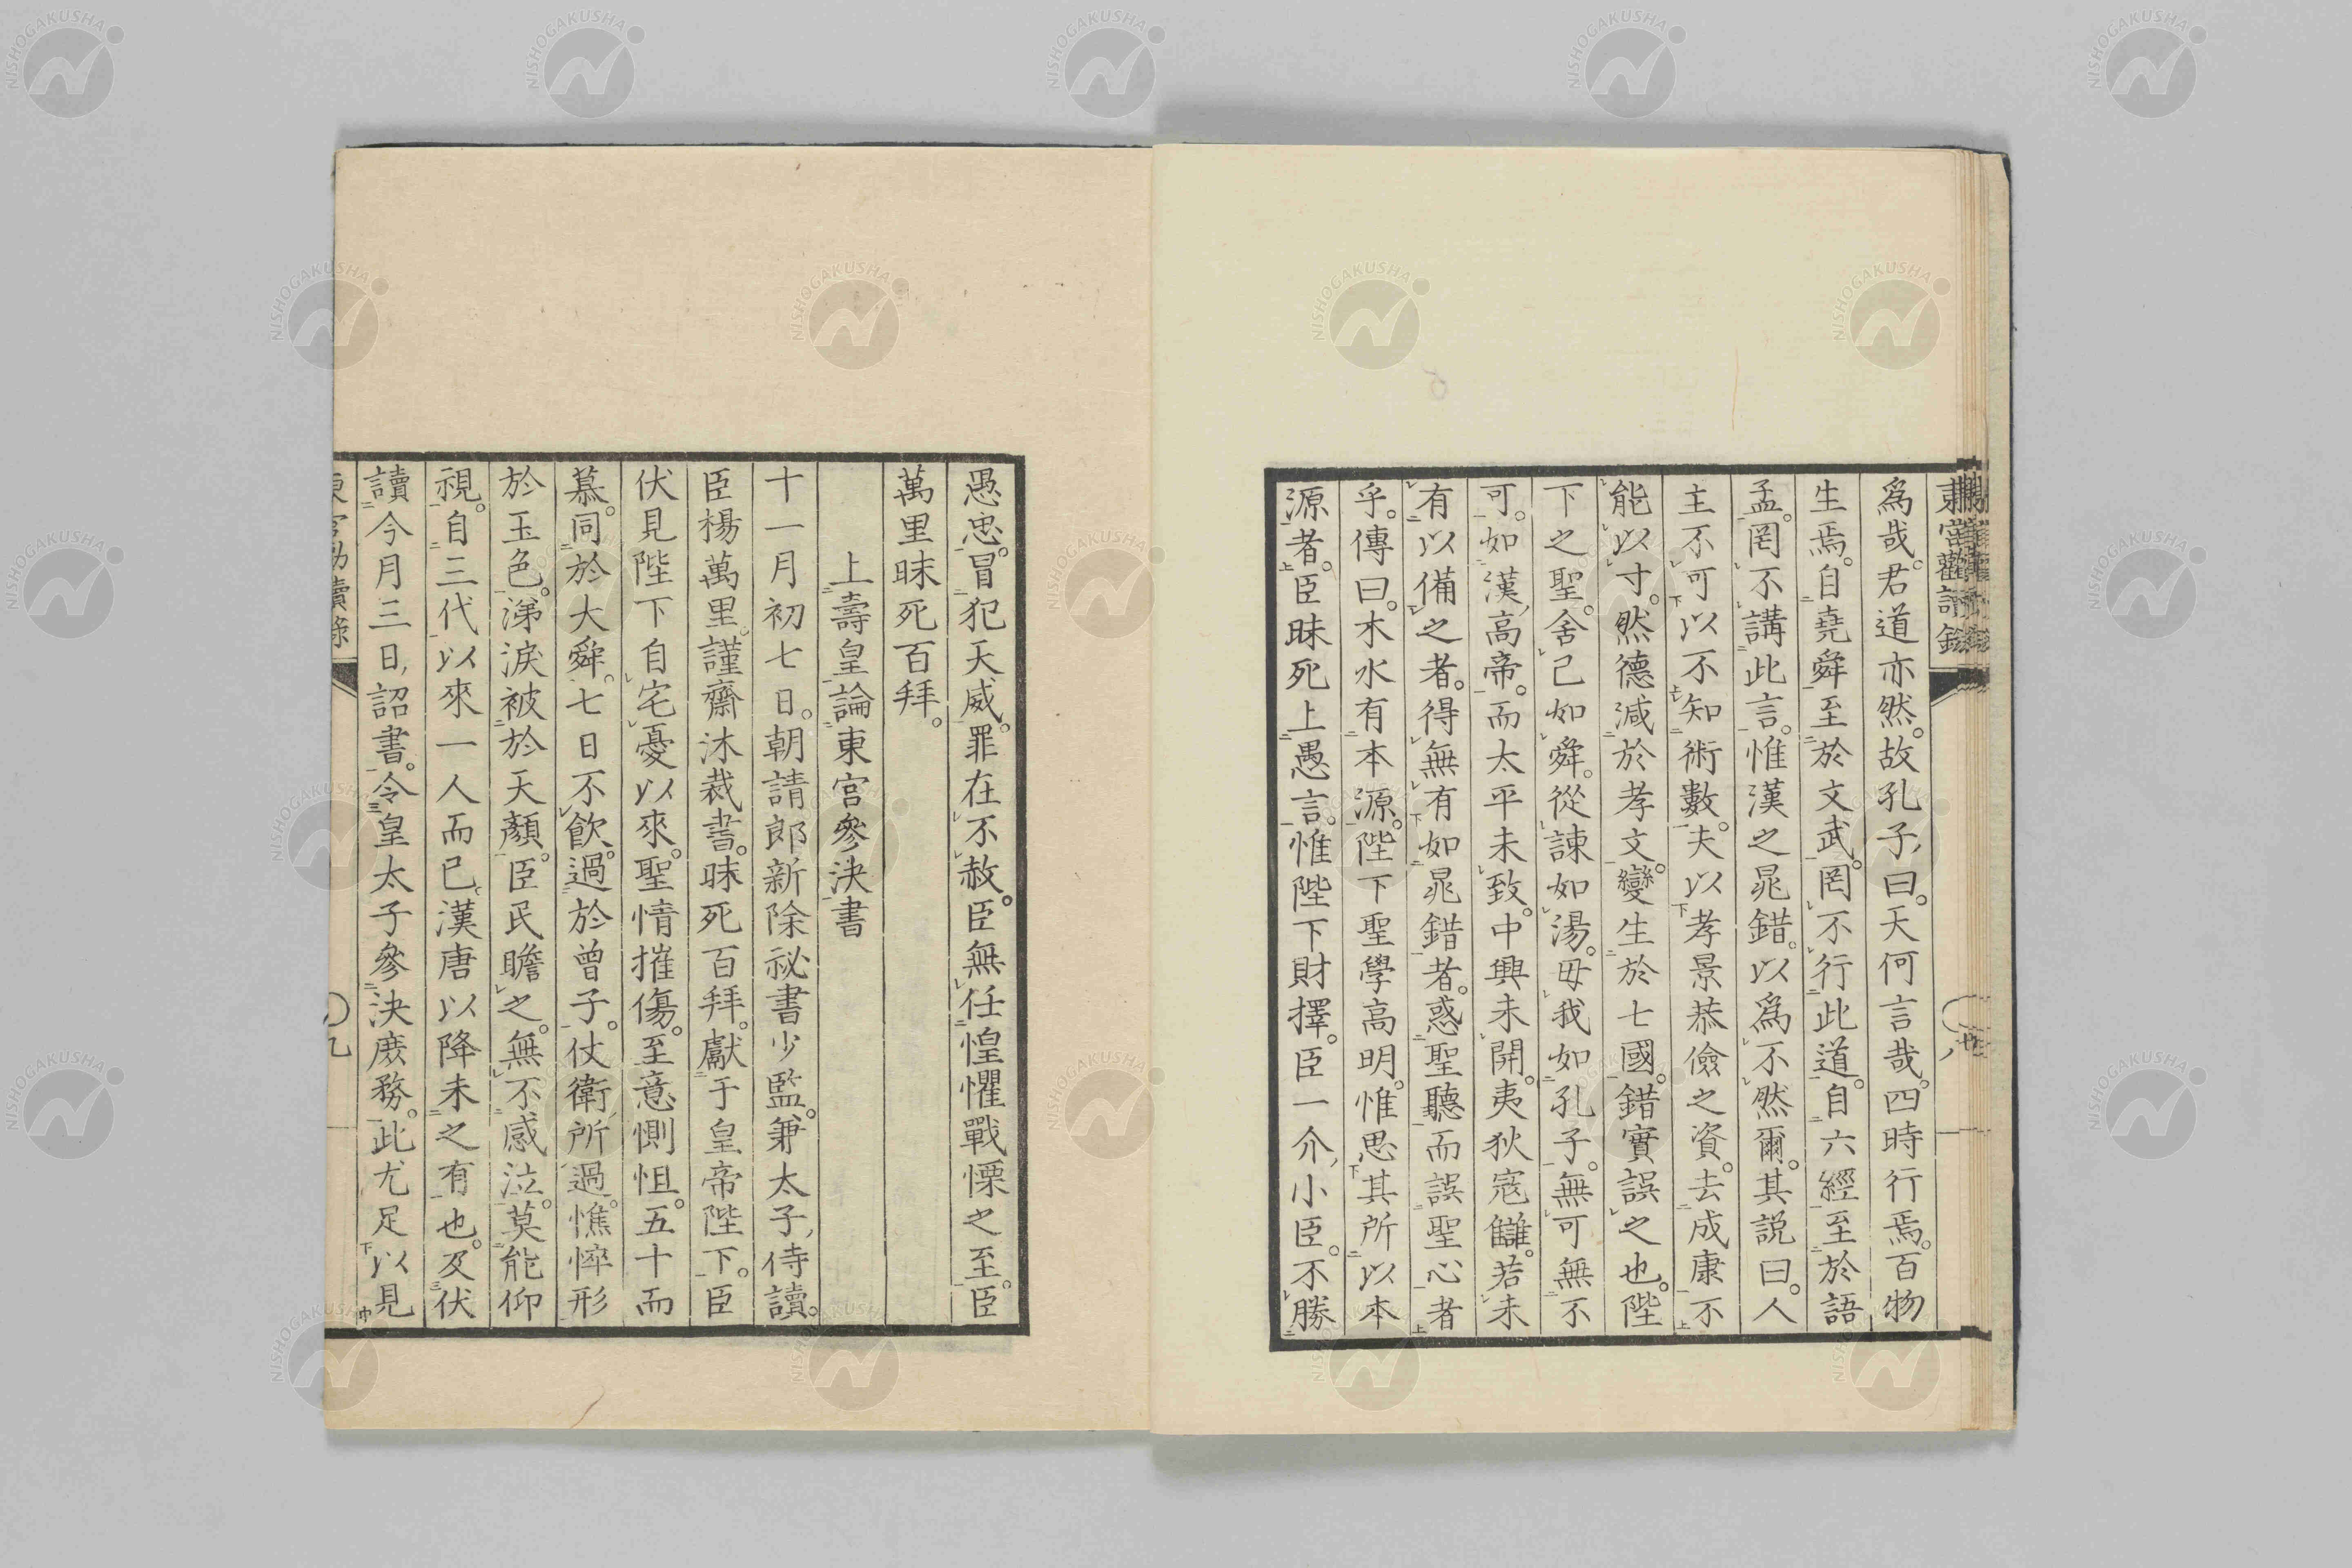 爲哉。君道亦然。故孔子曰。天何言哉。四時行焉。百物
生焉。自堯舜至於文武。罔不行此道。自六經至於語
孟。罔不講此言。惟漢之鼂錯。以爲不然爾。其説曰。人
主不可以不知術數。夫以孝景恭儉之資。去成康不
能以寸。然德減於孝文。變生於七國。錯實誤之也。陛
下之聖。舍己如舜。從諫如湯。毋我如孔子。無可無不
可。如漢高帝。而太平未致。中興未開。夷狄寇讎。若未
有以備之者。得無有如鼂錯者。惑聖聽而誤聖心者
乎。傳曰。木水有本源。陛下聖學高明。惟思其所以本
源者。臣昧死上愚言。惟陛下財擇。臣一介小臣。不勝
愚忠。冒犯天威。罪在不赦。臣無任惶懼戰慄之至。臣
萬里昧死百拜。
上壽皇論東宮參決書
十一月初七日。朝請郎新除祕書少監。兼太子侍讀。
臣楊萬里。謹齋沐裁書。昧死百拜。獻于皇帝陛下。臣
伏見陛下自宅憂以來。聖情摧傷。至意惻怛。五十而
慕。同於大舜。七日不飲。過於曾子。仗衛所過。憔悴形
於玉色。涕淚被於天顏。臣民瞻之。無不感泣。莫能仰
視。自三代以來一人而已。漢唐以降未之有也。及伏
讀今月三日詔書。令皇太子參決庶務。此尤足以見
九
NISHOGAKUSHA